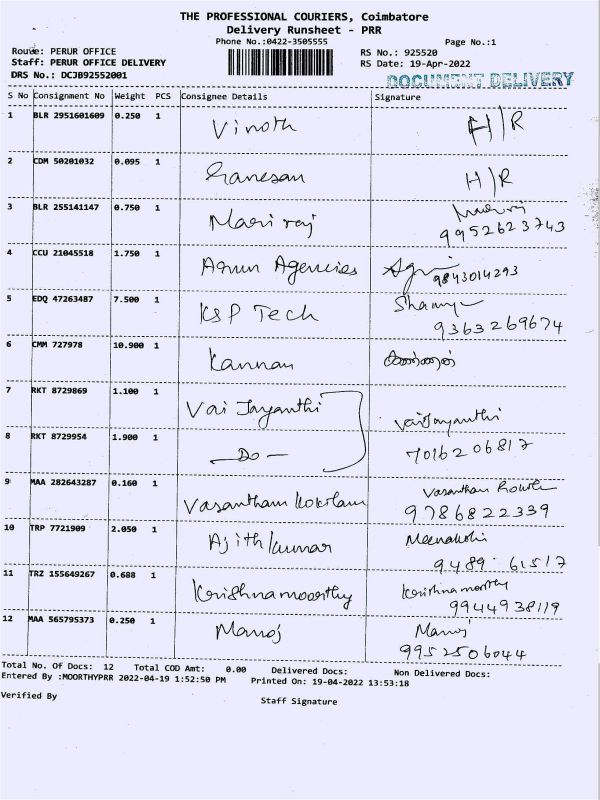 THE PROFESSIONAL COURIERS, Coimbatore
Delivery Runsheet - PRR
Phone No.:0422-3505555
Page No.:1
Route: PERUR OFFICE
RS No.: 925520
Staff: PERUR OFFICE DELIVERY
RS Date: 19-Apr-2022
DRS No.: DCJB92552001
DOCUMENT DELIVERY
S No Consignment No Weight PCS Consignee Details Signature
1 BLR 2951601609 0.250 1 Vinoth H/R
2 CDM 50201032 0.095 1 Ganesan H/R
3 BLR 255141147 0.750 1 Mari raj
9952623743
4 CCU 21045518 1.750 1 Arun Agencies 9843014293
5 EDQ 47263487 7.500 1 KSP Tech
9363269674
6 CMM 727978 10.900 1 Kannan
7 RKT 8729869 1.100 1 Vai Jayanthi Vaijayanthi
8 RKT 8729954 1.900 1 — Do — 7016206817
9 MAA 282643287 0.160 1 Vasantham
9786822339
10 TRP 7721909 2.050 1 Ajith kumar Meenakshi
9489 61517
11 TRZ 155649267 0.688 1 Krishnamoorthy Krishnamoorthy
9944938119
12 MAA 565795373 0.250 1 Manoj Manoj
9952506044
Total No. Of Docs: 12 Total COD Amt: 0.00 Delivered Docs: Non Delivered Docs:
Entered By :MOORTHYPRR 2022-04-19 1:52:50 PM Printed On: 19-04-2022 13:53:18
Verified By
Staff Signature